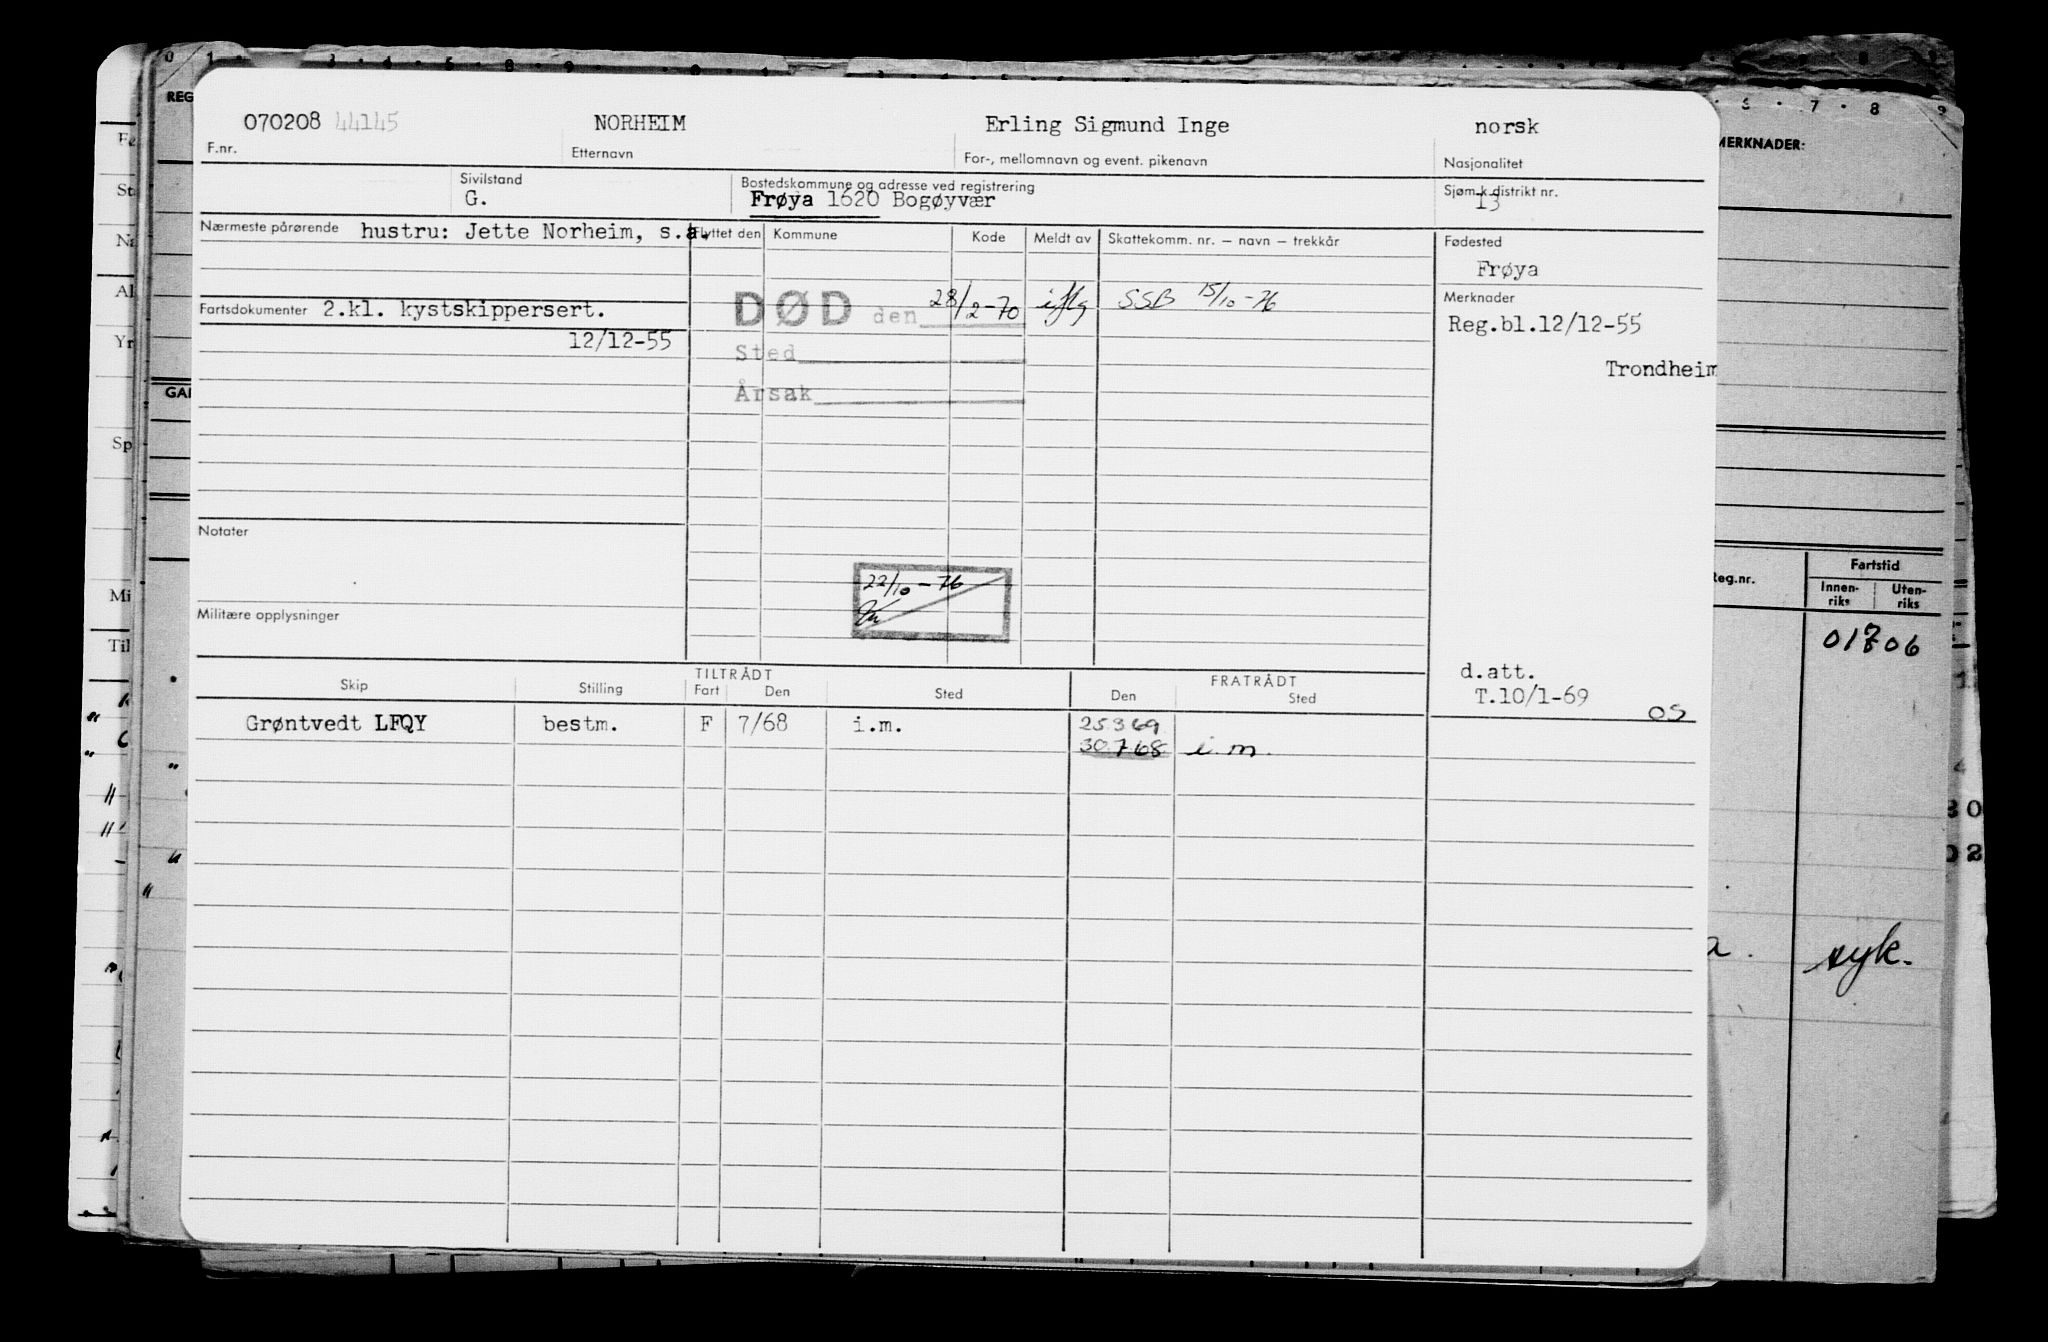 070208 44145 NORHEIM Erling Sigmund Inge norsk
F.nr. Etternavn For-, mellomnavn og event. pikenavn Nasjonalitet
Sivilstand Bostedskommune og adresse ved registrering Sjøm.k.distrikt nr.
G. Frøya 1620 Bogøyvær 13
Nærmeste pårørende hustru: Jette Norheim, s.a. Flyttet den Kommune Kode Meldt av Skattekomm. nr. – navn – trekkår Fødested
Frøya
DØD den 28/2-70 iflg SSB 15/10-76
Merknader
Fartsdokumenter 2.kl. kystskippersert.
12/12-55
Reg.bl.12/12-55
Sted
Trondheim
Årsak
Notater
22/10-76
Militære opplysninger
d.att.
T.10/1-69
OS
TILTRÅDT FRATRÅDT
Skip Stilling Fart Den Sted Den Sted
Grøntvedt LFQY bestm. F 7/68 i.m. 25.3 69
30.7 68 i.m.
REG
GAR
MERKNADER:
Reg.nr.
Fartstid
Innen-riks
Uten-riks
syk.